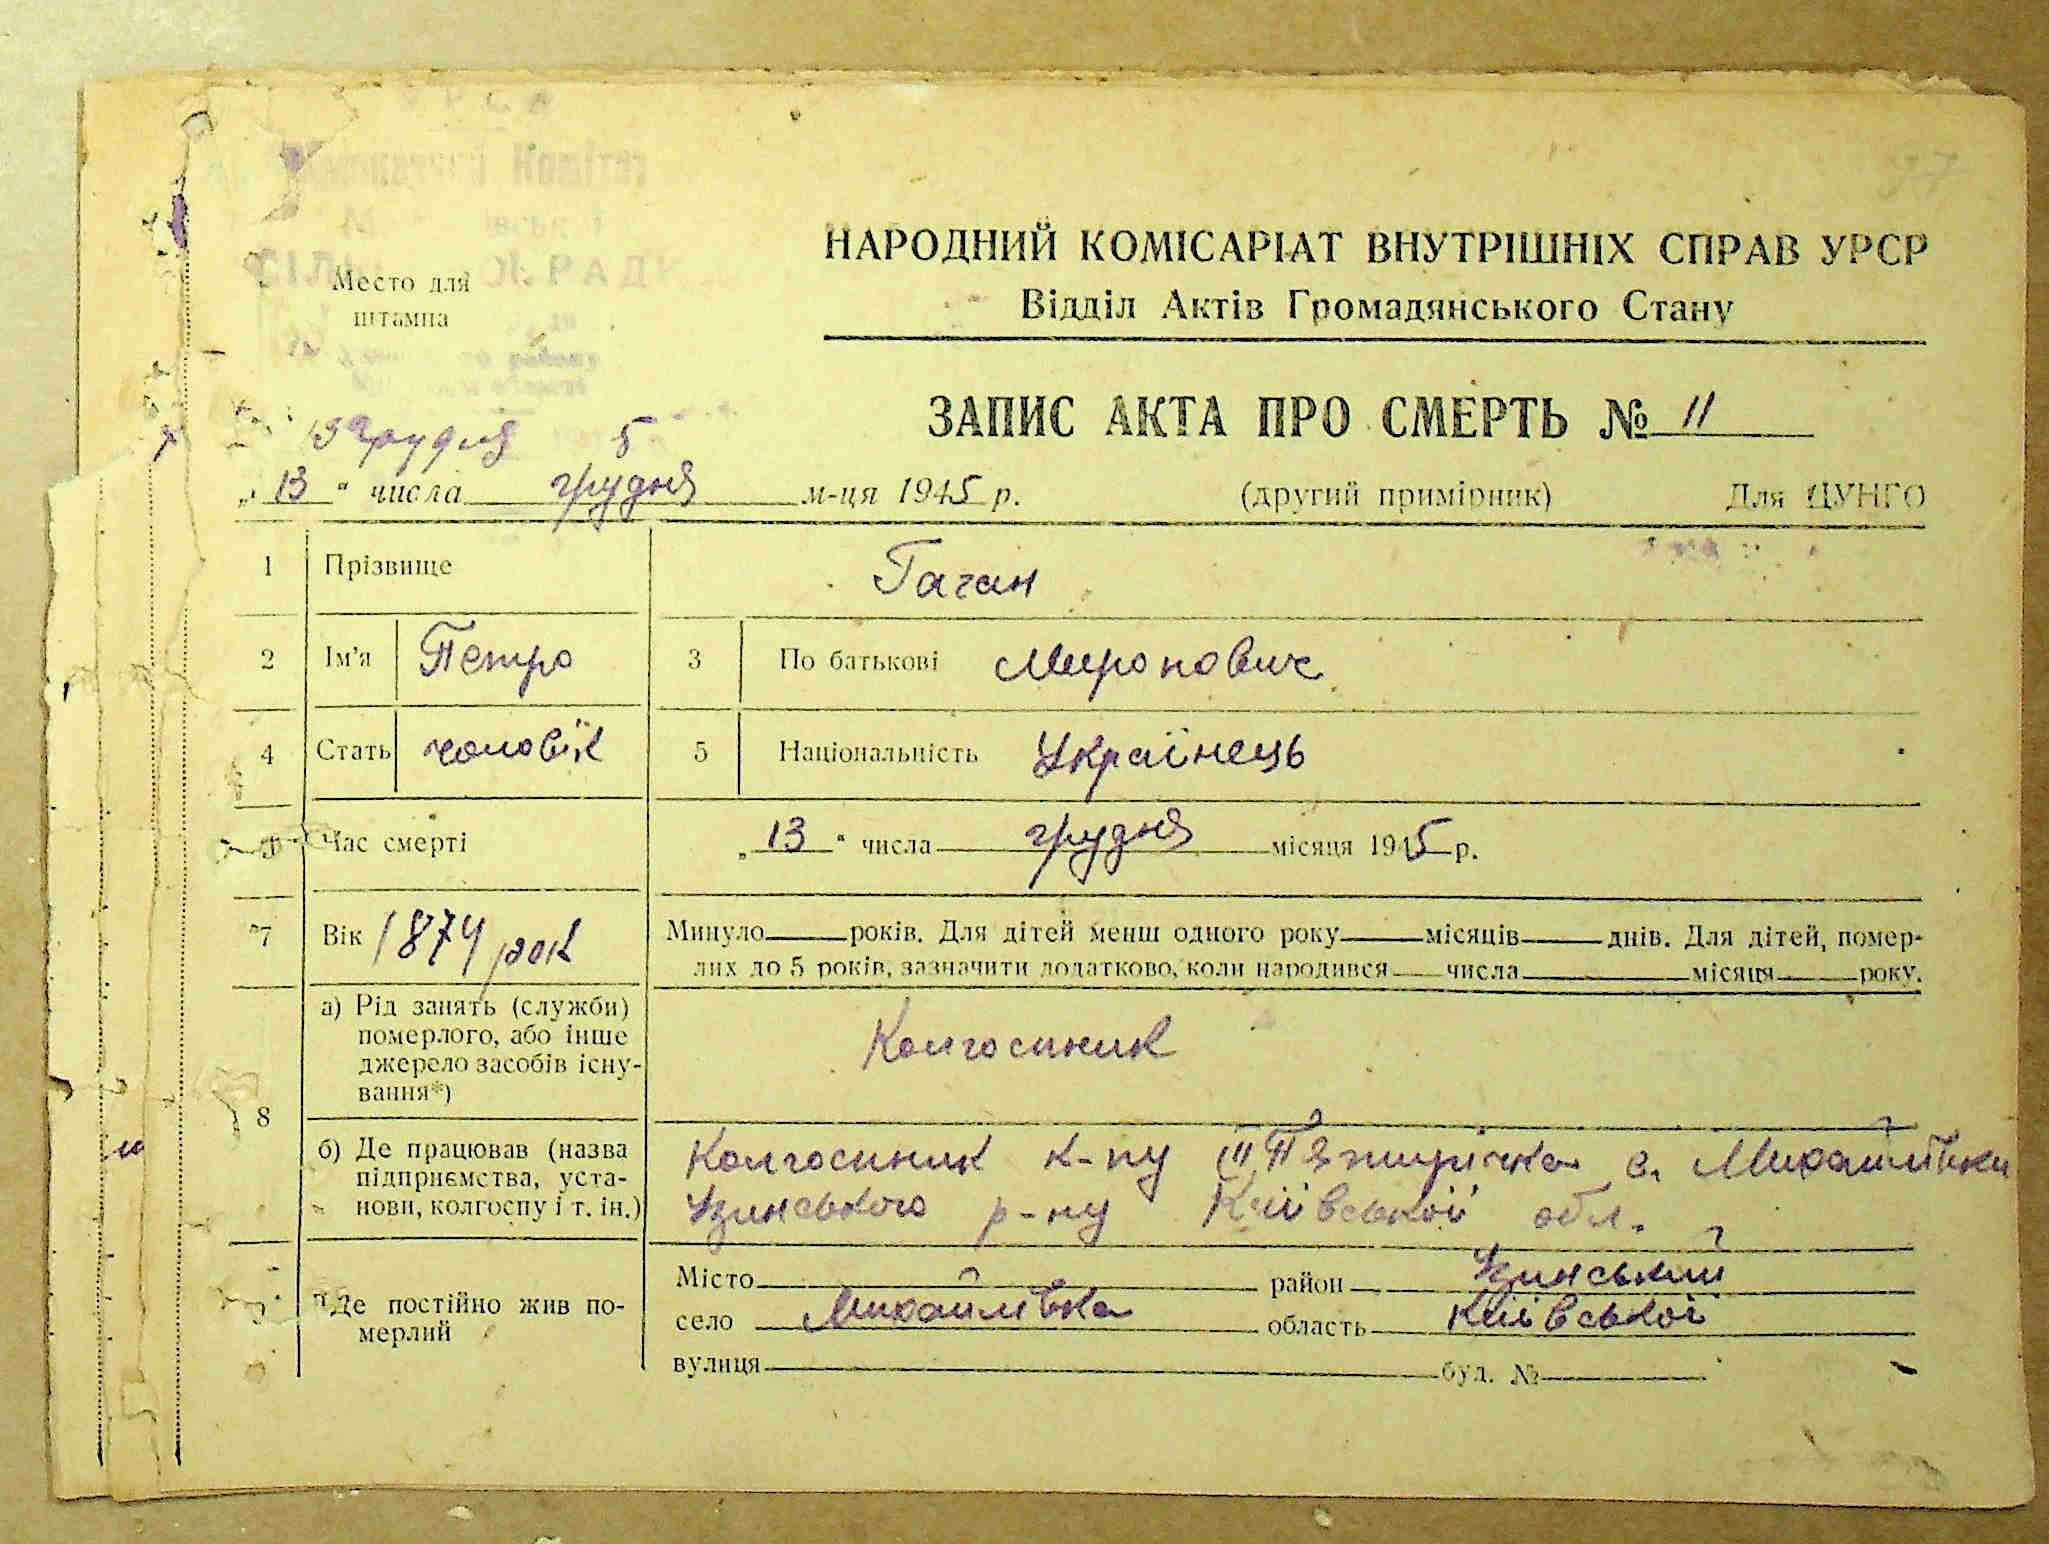 97
Комітет
РАДИ
Место для
штампа
НАРОДНИЙ КОМІСАРІАТ ВНУТРІШНІХ СПРАВ УРСР
Відділ Актів Громадянського Стану
ЗАПИС АКТА ПРО СМЕРТЬ № 11
13 грудня 5
„13“ числа грудня м-ця 1945 р. (другий примірник) Для ЦУНГО
1 Прізвище Гаган
2 Ім'я Петро 3 По батькові Миронович
4 Стать чоловік 5 Національність Українець
Час смерті „13“ числа грудня місяця 1945 р.
7 Вік 1874 рок Минуло____років. Для дітей менш одного року____місяців____днів. Для дітей, помер-
лих до 5 років, зазначити додатково, коли народився____числа____місяця____року.
8 а) Рід занять (служби)
померлого, або інше
джерело засобів існу-
вання*)
Колгоспник
б) Де працював (назва
підприємства, уста-
нови, колгоспу і т. ін.)
Колгоспник к-пу III Пятирічка с. Михайлівки
Узинського р-ну Київської обл.
Де постійно жив по-
мерлий
Місто____ район Узинський
село Михайлівка область Київської
вулиця____ буд. №____